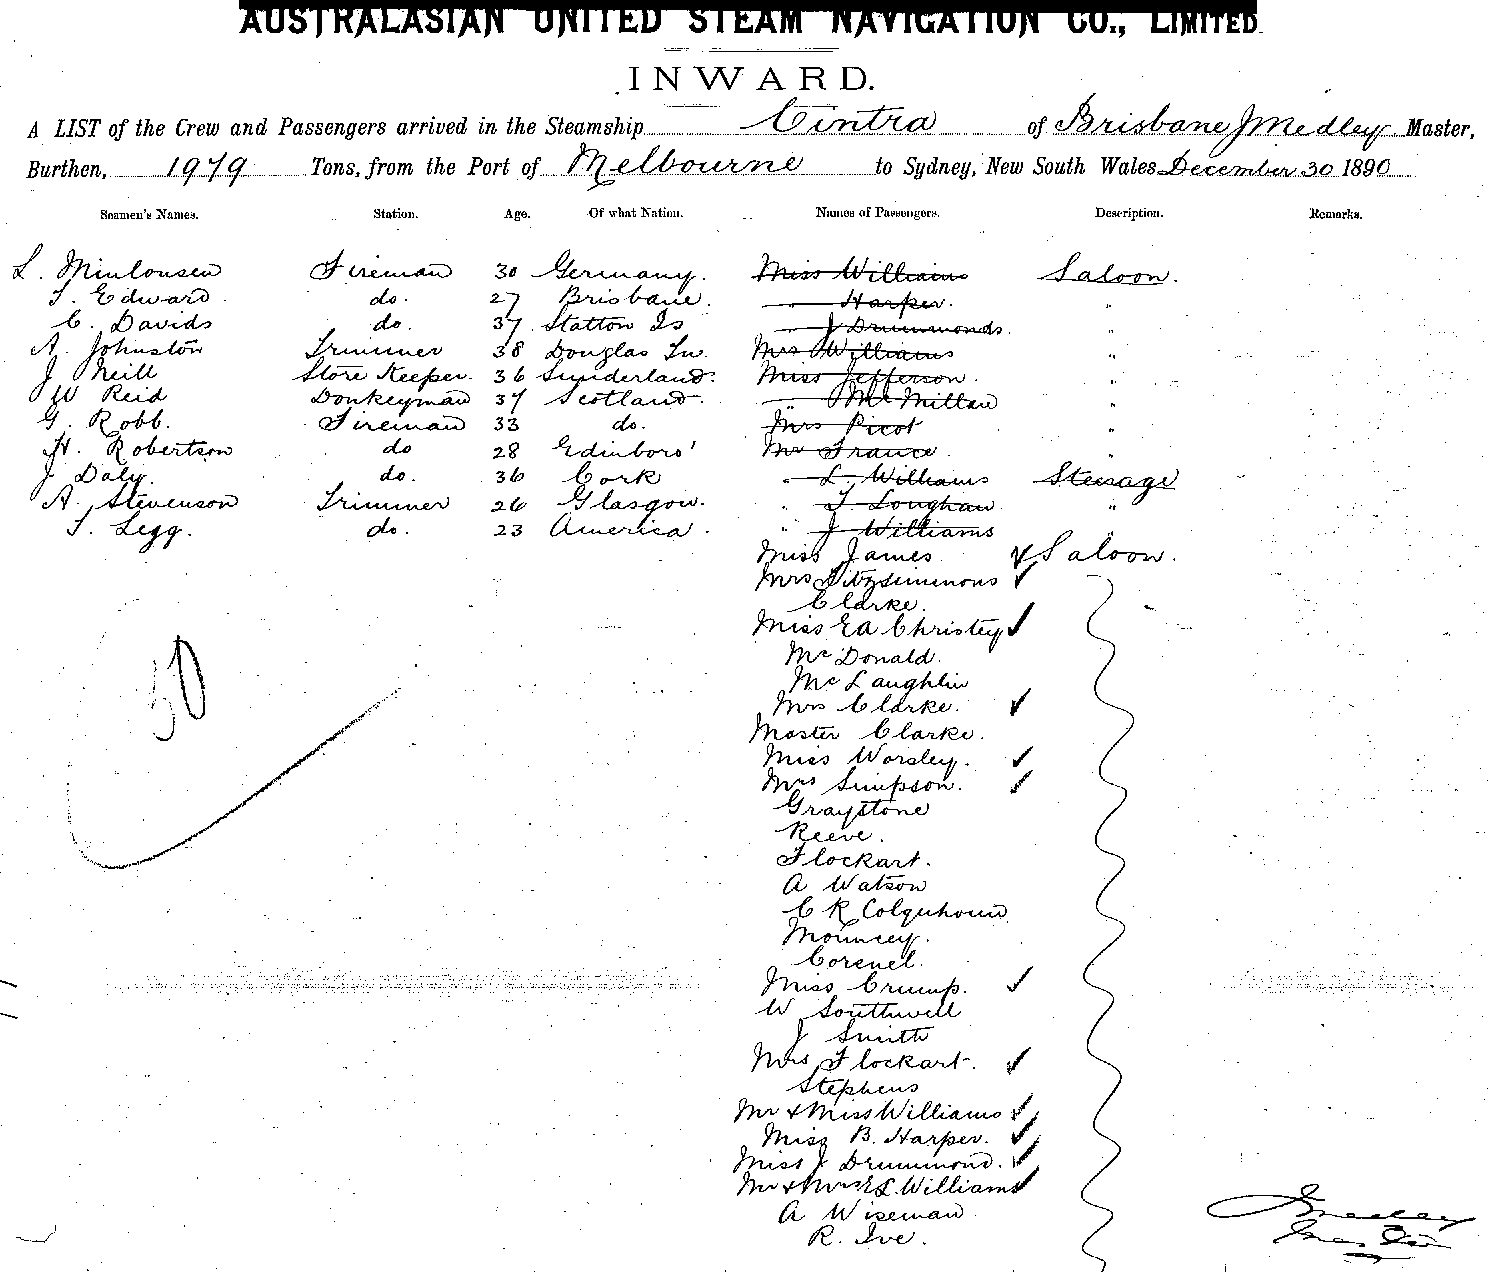 AUSTRALASIAN UNITED STEAM NAVIGATION CO., LIMITED.
INWARD.
A LIST of the Crew and Passengers arrived in the Steamship Cintra of Brisbane J Medley Master,
Burthen, 1979 Tons, from the Port of Melbourne to Sydney, New South Wales December 30 1890
Seamen's Names. Station. Age. Of what Nation. Names of Passengers. Description. Remarks.
L. Minlousen Fireman 30 Germany. Miss Williams Saloon.
T. Edward do. 27 Brisbane. " Harper. "
C. Davids do. 37 Statton Is " J Drummonds. "
A. Johnston Trimmer 38 Douglas In. Mrs Williams "
J Neill Store Keeper. 36 Sunderland. Miss Jefferson. "
W Reid Donkeyman 37 Scotland. " McMillan "
G. Robb. Fireman 33 do. Mrs Picot "
H. Robertson do 28 Edinboro' Mr France "
J Daly. do. 36 Cork " L. Williams Steerage
A. Stevenson Trimmer 26 Glasgow. " T Loughan "
T. Legg. do. 23 America. " J Williams
Miss James Saloon.
Mrs Fitzsimmons
Clarke.
Miss EA Christey
McDonald.
McLaughlin
Mrs Clarke.
Master Clarke.
Miss Worsley.
50
Mrs Simpson.
Graystone
Reeve.
Flockart.
A Watson
C R Colquhoun
Mouncey.
Corenel.
Miss Crump.
W Southwell
J Smith
Mrs Flockart.
Stephens
Mr & Miss Williams
Miss B. Harper.
Miss J Drummond.
Mr & Mrs E L. Williams
A Wiseman
R. Ive.
J Medley
Master